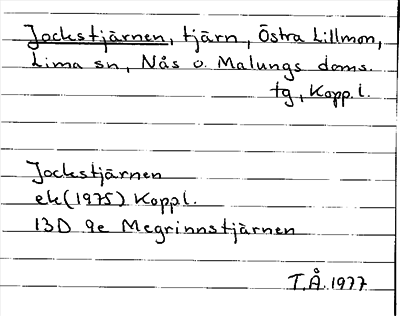 Jockstjärnen, tjärn, Östra Lillmon,
Lima sn, Nås o. Malungs doms.
tg, Kopp.l.
Jockstjärnen
ek (1975) Koppl.
13D 9e Megrinnstjärnen
T.Å. 1977